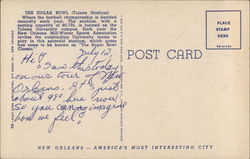 THE SUGAR BOWL (Tulane Stadium)
Where the football championship is decided
annually each year. The stadium, with a
seating capacity of 80,735, is located on the
Tulane University campus. Each year the
New Orleans Mid-Winter Sports Association
invites the outstanding University teams to
play in this splendid stadium, which game
has come to be known as "The Sugar Bowl
Classic."
POST CARD
PLACE
STAMP
HERE
July 19
Hi!
Saw this today
on our tour of New
Orleans. It's just
about 98° here now
So you can imagine
how we feel!
NEW ORLEANS — AMERICA'S MOST INTERESTING CITY